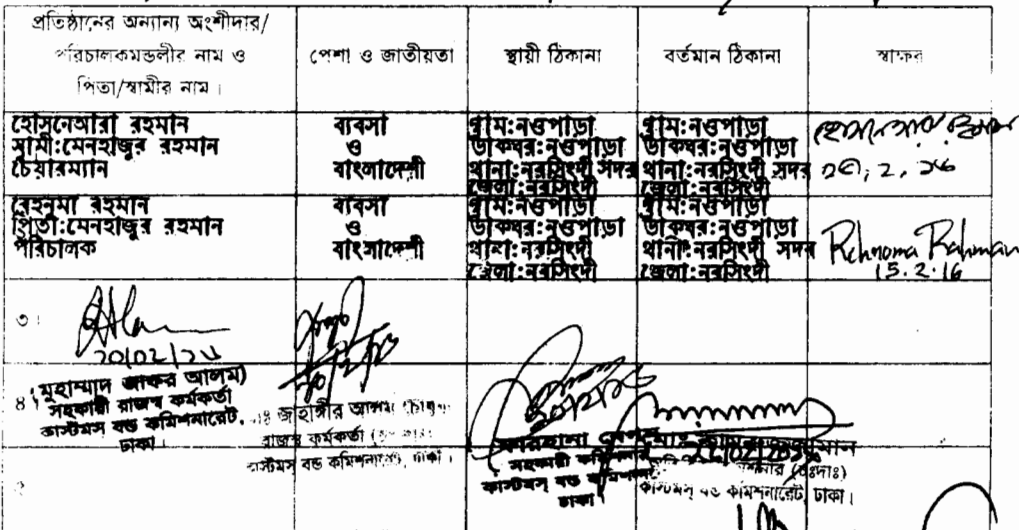 প্রতিষ্ঠানের অন্যান্য অংশীদার/
পরিচালকমন্ডলীর নাম ও
পিতা/স্বামীর নাম।
পেশা ও জাতীয়তা
স্থায়ী ঠিকানা
বর্তমান ঠিকানা
স্বাক্ষর
হোসনেআরা রহমান
স্বামী:মেনহাজুর রহমান
চেয়ারম্যান
ব্যবসা
ও
বাংলাদেশী
গ্রাম:নওপাড়া
ডাকঘর:নওপাড়া
থানা:নরসিংদী সদর
জেলা:নরসিংদী
গ্রাম:নওপাড়া
ডাকঘর:নওপাড়া
থানা:নরসিংদী সদর
জেলা:নরসিংদী
রেহনুমা রহমান
পিতা:মেনহাজুর রহমান
পরিচালক
ব্যবসা
ও
বাংলাদেশী
গ্রাম:নওপাড়া
ডাকঘর:নওপাড়া
থানা:নরসিংদী
জেলা:নরসিংদী
গ্রাম:নওপাড়া
ডাকঘর:নওপাড়া
থানা:নরসিংদী সদর
জেলা:নরসিংদী
Rehnoma Rahman
15.2.16
৩।
20/02/১৬
(মুহাম্মাদ জাফর আলম)
সহকারী রাজস্ব কর্মকর্তা
কাস্টমস বন্ড কমিশনারেট,
ঢাকা।
৪।
জাহাঙ্গীর আলম
রাজস্ব কর্মকর্তা
কাস্টমস বন্ড কমিশনারেট, ঢাকা।
ফারহানা
সহকারী কমিশনার
কাস্টমস্ বন্ড
ঢাকা
(চঃদাঃ)
কাস্টমস্ বন্ড কমিশনারেট, ঢাকা।